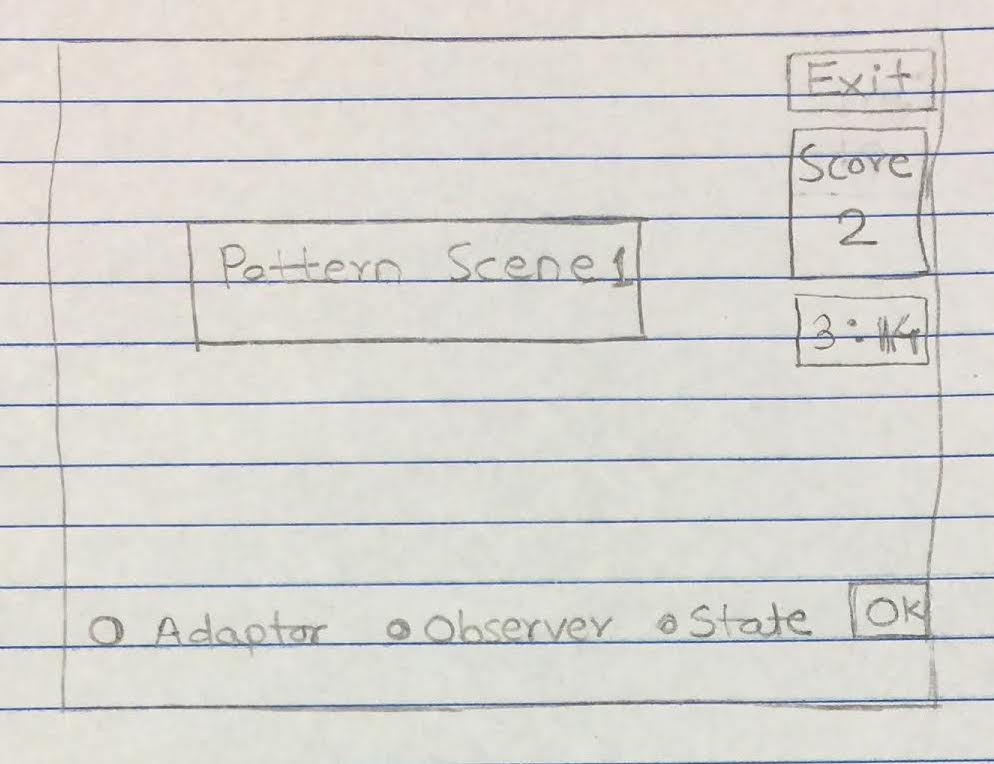 Exit
Score
2
Pattern Scene 1
3:
O Adaptor o Observer o State OK